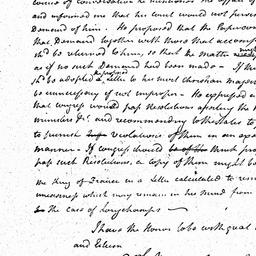 course of conversation he mentioned the affair of
and informed me that his court would not persevere
Demand of him. He proposed that the
that Demand together with those that accompanied
shd. be returned to him, so that the matter might
as if no such Demand had been made - If this
shd. be adopted a Letter to his most Christian Majesty
be unnecessary if not improper - He expressed a
that Congress would pass Resolutions asserting the
ministers &c. and recommending to the States to
to punish violations of them in an
manner - If Congress should think proper
pass such Resolutions, a copy of them might be
the King of France in a Letter calculated to remove
uneasiness which may remain in his mind from
the case of Longchamps -
I have the Honor to be with great
and Esteem